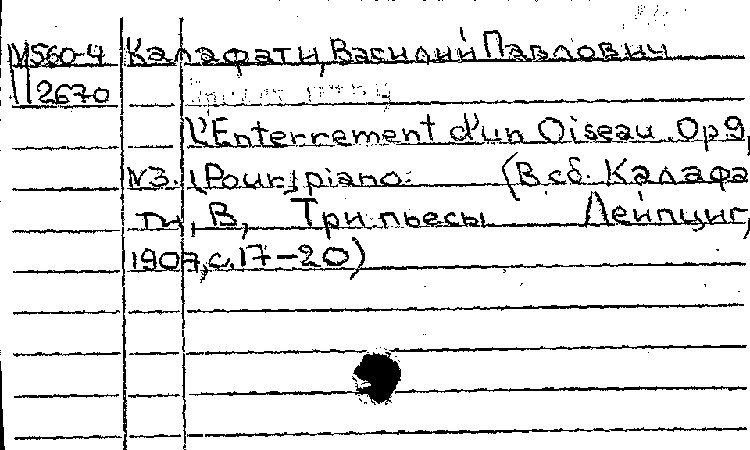 М560-4 Калафати, Василий Павлович
2670
L'Enterrement d'un Oiseau. Op 9,
N3. (Pour) piano. (В сб. Калафа
ти, В, Три пьесы Лейпциг,
1907, с. 17-20)